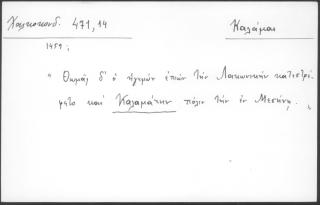 Χαλκοκονδ. 471,14
Καλάμαι
1459:
" Θωμᾶς δ' ὁ ἡγεμὼν ἐπιὼν τὴν Λακωνικὴν κατεστρέ-
ψατο καὶ Καλαμάταν πόλιν τὴν ἐν Μεσήνῃ. "